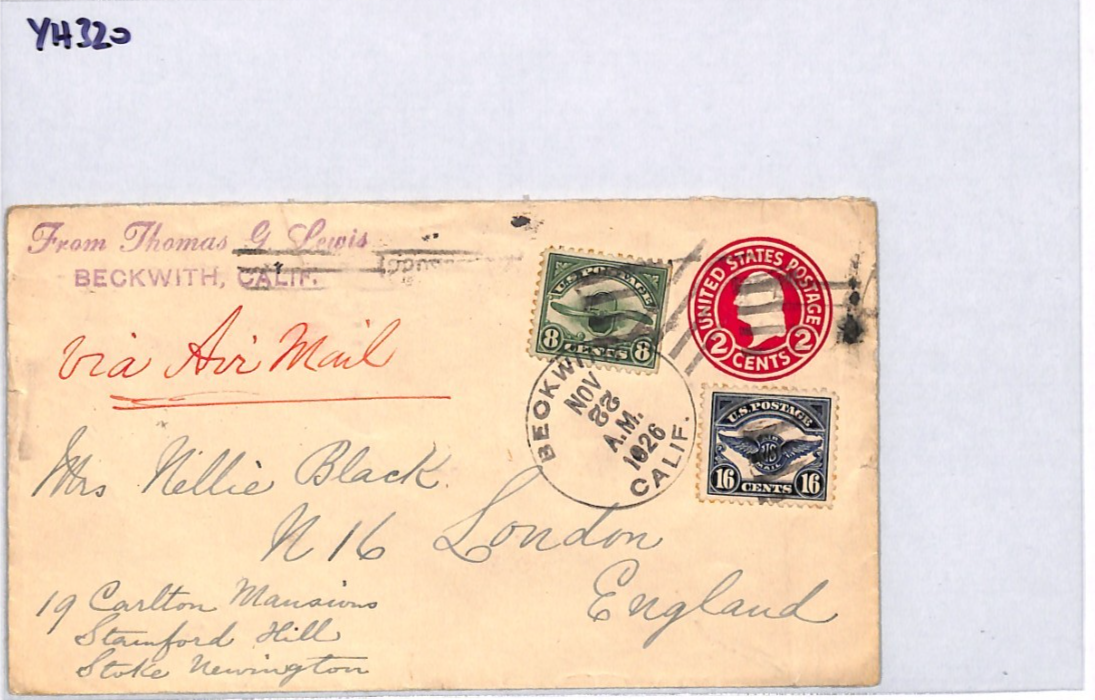 YH320
From Thomas G. Lewis
BECKWITH, CALIF.
via Air Mail
U.S. POSTAGE
8 CENTS 8
UNITED STATES POSTAGE
2 CENTS 2
BECKWITH
NOV
22
A.M.
1926
CALIF.
U.S. POSTAGE
AIR
US
MAIL
16 CENTS 16
Mrs Nellie Black.
N 16 London
England
19 Carlton Mansions
Stamford Hill
Stoke Newington